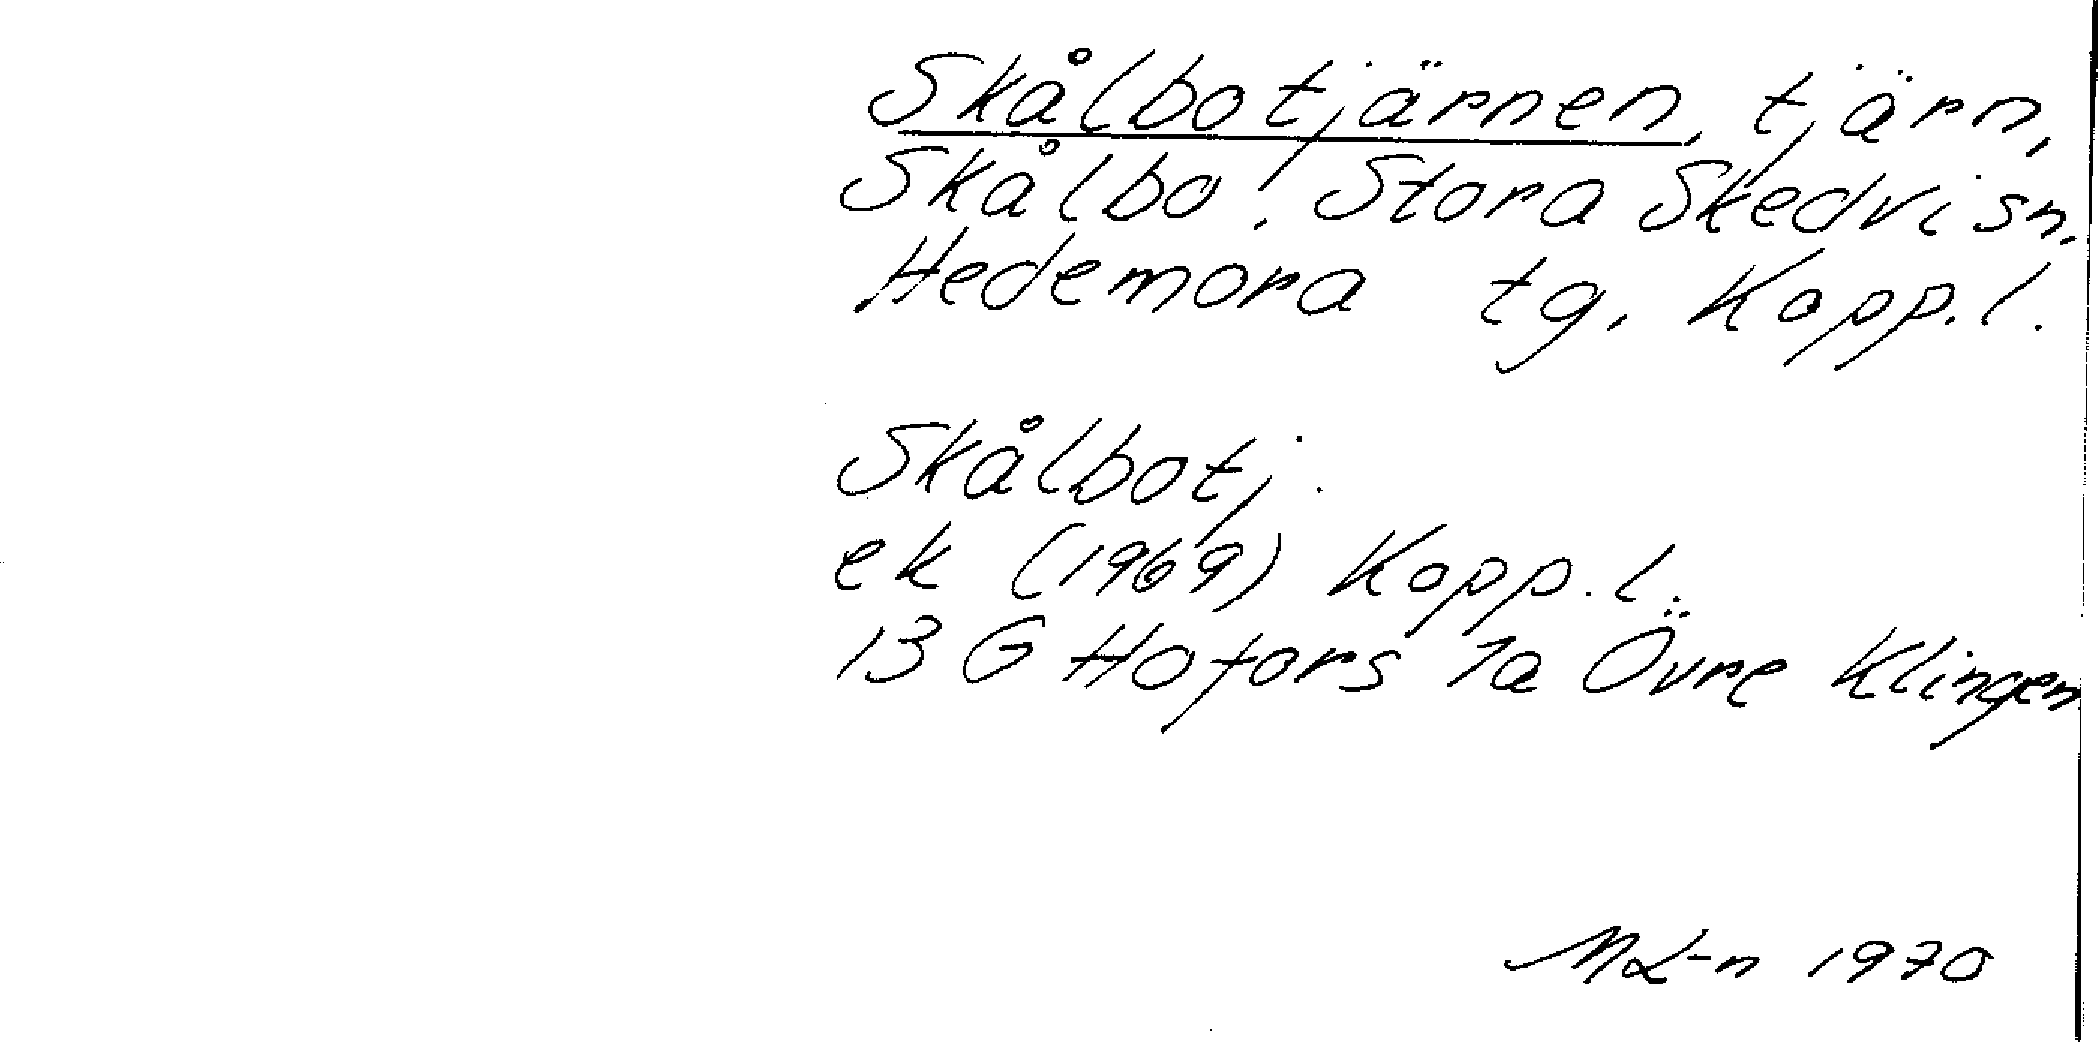 Skålbotjärnen, tjärn,
Skålbo, Stora Skedvi sn,
Hedemora tg, Kopp. l.
Skålbotj.
ek (1969) Kopp. l.
13 G Hofors 1a Övre Klingen
ML-n 1970